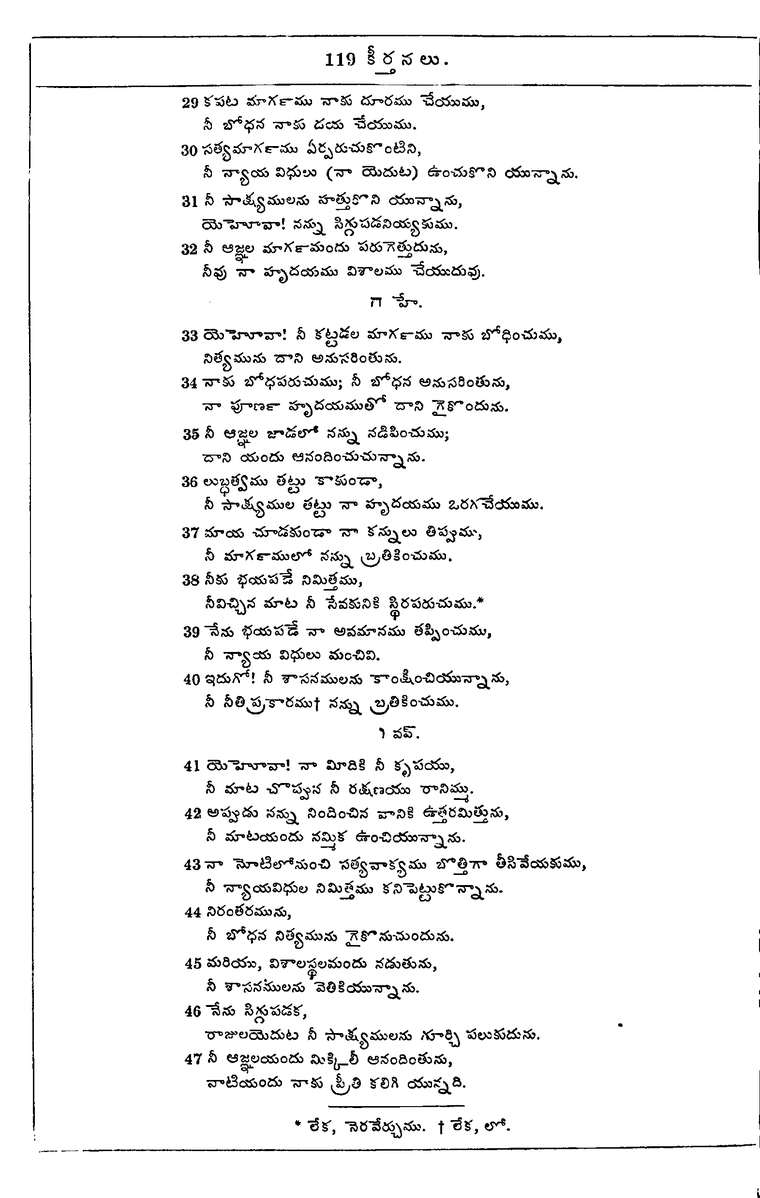 119 కీర్తనలు.
29 కపట మార్గము నాకు దూరము చేయుము,
నీ బోధన నాకు దయ చేయుము.
30 సత్యమార్గము ఏర్పరుచుకొంటిని,
నీ న్యాయ విధులు (నా యెదుట) ఉంచుకొని యున్నాను.
31 నీ సాక్ష్యములను హత్తుకొని యున్నాను,
యెహోవా! నన్ను సిగ్గుపడనియ్యకుము.
32 నీ ఆజ్ఞల మార్గమందు పరుగెత్తుదును,
నీవు నా హృదయము విశాలము చేయుదువు.
ה హే.
33 యెహోవా! నీ కట్టడల మార్గము నాకు బోధించుము,
నిత్యమును దాని అనుసరింతును.
34 నాకు బోధపరుచుము; నీ బోధన అనుసరింతును,
నా పూర్ణ హృదయముతో దాని గైకొందును.
35 నీ ఆజ్ఞల జాడలో నన్ను నడిపించుము;
దాని యందు ఆనందించుచున్నాను.
36 లుబ్ధత్వము తట్టు కాకుండా,
నీ సాక్ష్యముల తట్టు నా హృదయము ఒరగచేయుము.
37 మాయ చూడకుండా నా కన్నులు తిప్పుము,
నీ మార్గములో నన్ను బ్రతికించుము.
38 నీకు భయపడే నిమిత్తము,
నీవిచ్చిన మాట నీ సేవకునికి స్థిరపరుచుము.*
39 నేను భయపడే నా అవమానము తప్పించుము,
నీ న్యాయ విధులు మంచివి.
40 ఇదుగో! నీ శాసనములను కాంక్షించియున్నాను,
నీ నీతిప్రకారము† నన్ను బ్రతికించుము.
ו వవ్.
41 యెహోవా! నా మీదికి నీ కృపయు,
నీ మాట చొప్పున నీ రక్షణయు రానిమ్ము.
42 అప్పుడు నన్ను నిందించిన వానికి ఉత్తరమిత్తును,
నీ మాటయందు నమ్మిక ఉంచియున్నాను.
43 నా నోటిలోనుంచి సత్యవాక్యము బొత్తిగా తీసివేయకుము,
నీ న్యాయవిధుల నిమిత్తము కనిపెట్టుకొన్నాను.
44 నిరంతరమును,
నీ బోధన నిత్యమును గైకొనుచుందును.
45 మరియు, విశాలస్థలమందు నడుతును,
నీ శాసనములను వెతికియున్నాను.
46 నేను సిగ్గుపడక,
రాజులయెదుట నీ సాక్ష్యములను గూర్చి పలుకుదును.
47 నీ ఆజ్ఞలయందు మిక్కిలీ ఆనందింతును,
వాటియందు నాకు ప్రీతి కలిగి యున్నది.
* లేక, నెరవేర్చుము. † లేక, లో.